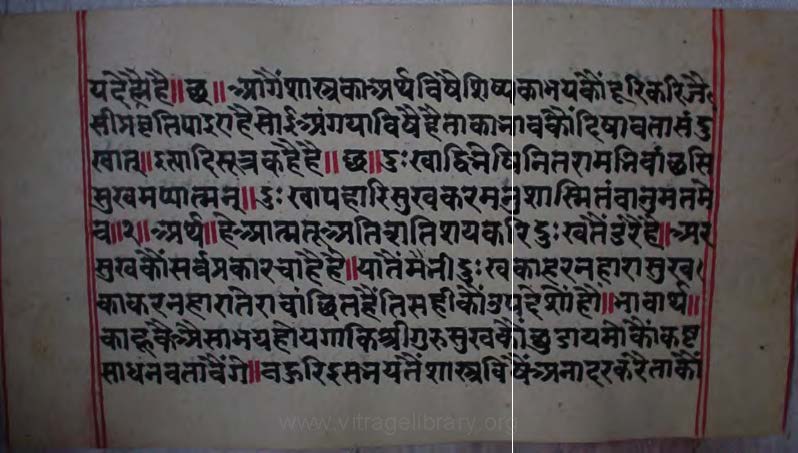 यहेहैहै॥छ॥आगैंशास्त्रकाअर्थविषैशिष्यकाभयकौंदूरिकरिजै
सीप्रवृत्तिपाइराहैसोईअंगयाविषैहैताकाभावकौंदिषावतासंदु
खात्॥इत्यादिसूत्रकहैहै॥छ॥दुःखाद्विभेषिनितरामभिवांछसि
सुखमप्यात्मन्॥दुःखापहारिसुखकरमनुशास्मितवानुमतमे
व॥२॥अर्थ॥हेआत्मतूअतिशातिशयकरिदुःखतैंउरैहै॥अर
सुखकौंसर्वप्रकारचाहैहै॥यातैंमैंनीदुःखकाहरनहारासुख
काकरनहारातेरावांछितहैंतिसहीकौंउपदेशौंहौं॥भावार्थ॥
काहूकैऐसाभयहोयगाकिश्रीगुरुसुखकौंछुडायमोकौंकष्ट
साधनवतावैंगे॥बहुरिइसभयतैंशास्त्रविषैंअनादरकरैताकौं
www.vitragelibrary.org